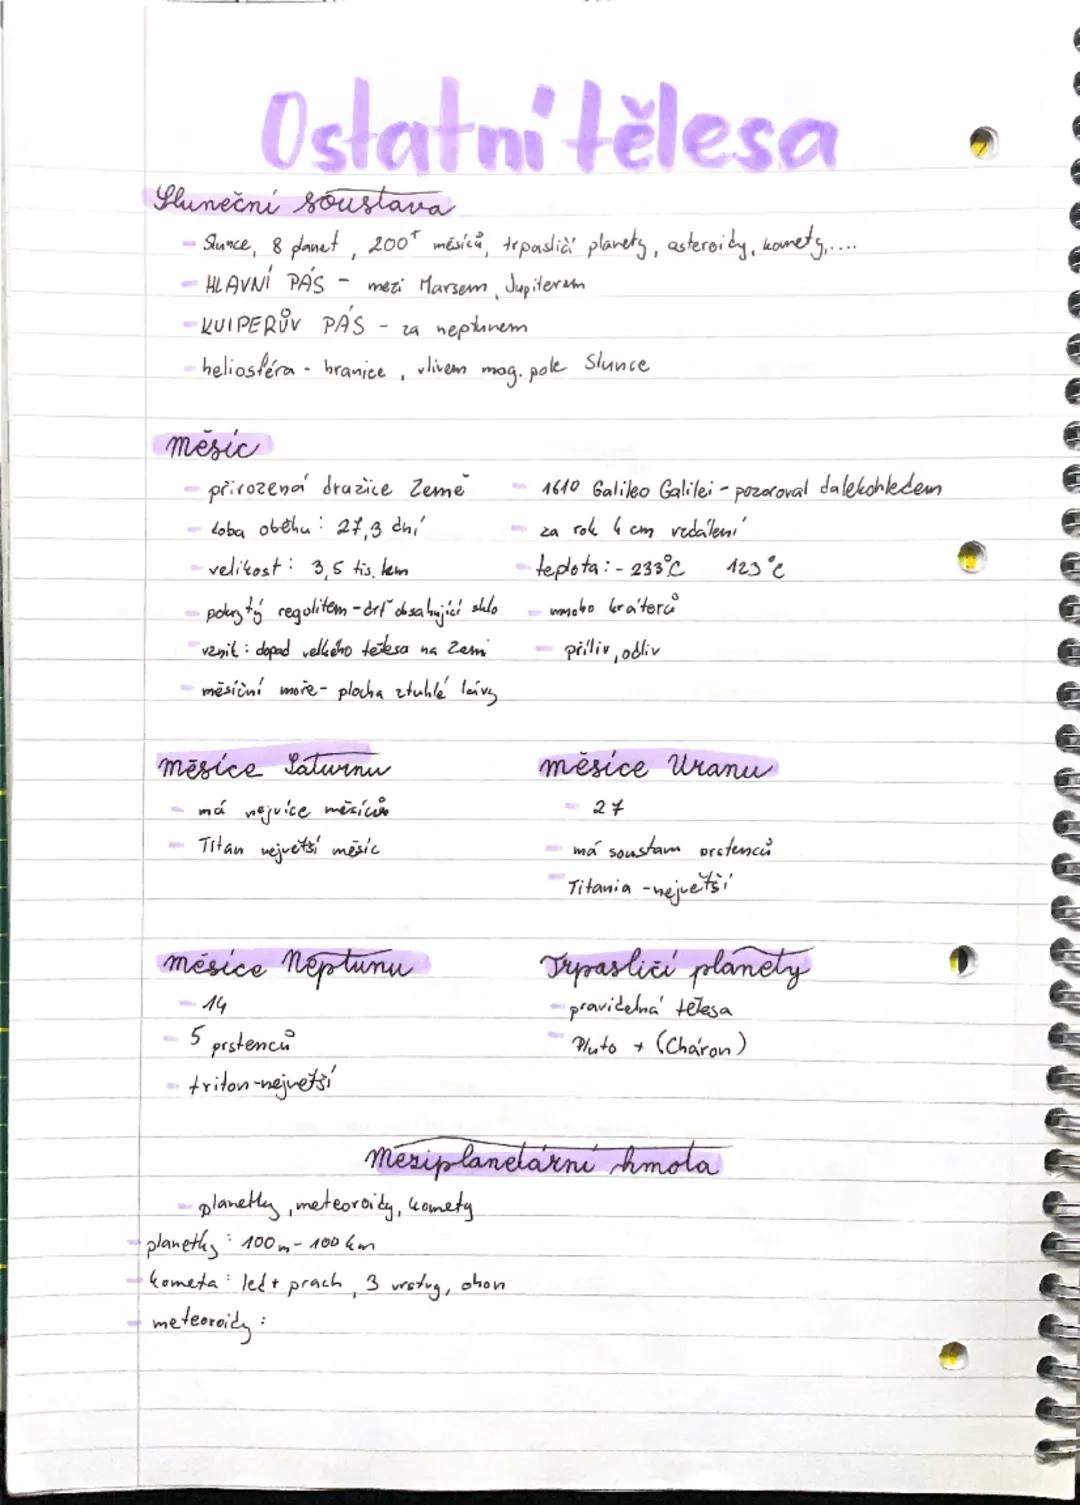 Ostatní tělesa
Sluneční soustava
- Slunce, 8 planet, 200+ měsíců, trpasličí planety, asteroidy, komety,....
- HLAVNÍ PÁS - mezi Marsem, Jupiterem
- KUIPERŮV PÁS - za neptunem
- heliosféra - hranice, vlivem mag. pole Slunce
měsíc
- přirozená družice Země
- doba oběhu: 27,3 dní
- velikost: 3,5 tis. km
- pokrytý regolitem - drť obsahující sklo
- vznik: dopad velkého tělesa na Zemi
- měsíční moře - plocha ztuhlé lávy
- 1610 Galileo Galilei - pozoroval dalekohledem
- za rok 4 cm vzdálení
- teplota: - 233°C 123°C
- mnoho kráterů
- příliv, odliv
měsíce Saturnu
- má nejvíce měsíců
- Titan největší měsíc
měsíce Uranu
- 27
- má soustavu prstenců
- Titania - největší
měsíce Neptunu
- 14
- 5 prstenců
- triton - největší
Trpasličí planety
- pravidelná tělesa
- Pluto + (Cháron)
Meziplanetární hmota
- planetky, meteoroidy, komety
- planetky: 100 m - 100 km
- kometa: led + prach, 3 vrstvy, ohon
- meteoroidy: